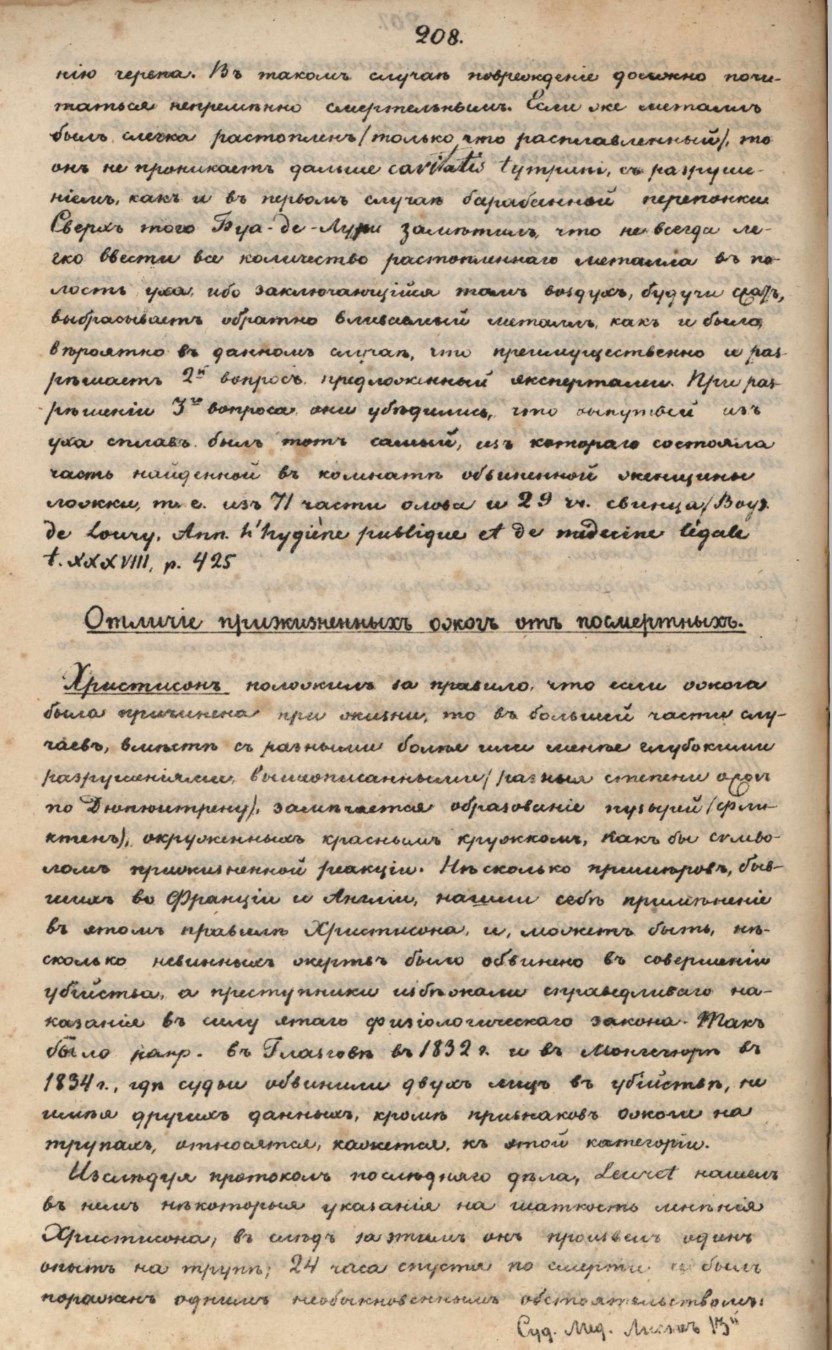 208.
нію черепа. Въ такомъ случаѣ поврежденіе должно почи-
таться непремѣнно смертельнымъ. Если же металлъ
былъ слегка растопленъ (только что расплавленный), то
онъ не проникаетъ дальше cavitatis tympani, съ разруше-
ніемъ, какъ и въ первомъ случаѣ барабанной перепонки
Сверхъ того Буа-де-Лури замѣтилъ, что не всегда ле-
гко ввести все количество растопленнаго металла въ по-
лость уха, ибо заключающійся тамъ воздухъ, будучи
выбрасываетъ обратно вливаемый металлъ, какъ и было,
вѣроятно въ данномъ случаѣ, что преимущественно и раз-
рѣшаетъ 2й вопросъ предложенный экспертами. При раз-
рѣшеніи 3го вопроса они убѣдились, что вынутый изъ
уха сплавъ былъ тотъ самый, изъ котораго состояла
часть найденной въ комнатѣ обвиненной женщины
ложки, т. е. изъ 71 части олова и 29 ч. свинца (Boys
de Loury, Ann. d'hygiène publique et de médecine légale
t. XXXVIII, p. 425
Отличіе прижизненныхъ ожогъ отъ посмертныхъ.
Христисонъ положилъ за правило, что если ожога
была причинена при жизни, то въ большей части слу-
чаевъ, вмѣстѣ съ разными болѣе или менѣе глубокими
разрушеніями, вышеописанными (разныя степени ожоги
по Дюпюитрену), замѣчается образованіе пузырей (фли-
ктенъ), окруженныхъ краснымъ кружкомъ, какъ бы симво-
ломъ прижизненной реакціи. Нѣсколько примѣровъ, быв-
шихъ во Франціи и Англіи, нашли себѣ примѣненіе
въ этомъ правилѣ Христисона, и, можетъ быть, нѣ-
сколько невинныхъ жертвъ было обвинено въ совершеніи
убійства, а преступники избѣжали справедливаго на-
казанія въ силу этаго физіологическаго закона. Такъ
было напр. въ Глазговѣ въ 1832 г. и въ Монлегюрѣ въ
1834 г., гдѣ судьи обвинили двухъ лицъ въ убійствѣ, не
имѣя другихъ данныхъ, кромѣ признаковъ ожоги на
трупахъ, относятся, кажется, къ этой категоріи.
Изслѣдуя протоколъ послѣдняго дѣла, Leuret нашелъ
въ немъ нѣкоторыя указанія на шаткость мнѣнія
Христисона; въ слѣдъ за этимъ онъ произвелъ одинъ
опытъ на трупѣ; 24 часа спустя по смерти и былъ
пораженъ однимъ необыкновеннымъ обстоятельствомъ:
Суд. Мед. Листъ 13й